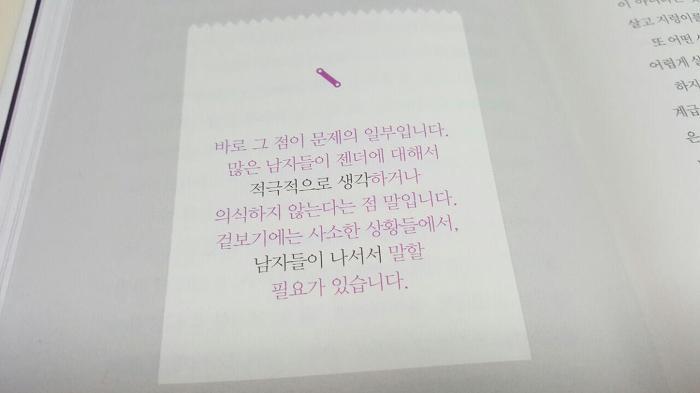 바로 그 점이 문제의 일부입니다.
많은 남자들이 젠더에 대해서
적극적으로 생각하거나
의식하지 않는다는 점 말입니다.
겉보기에는 사소한 상황들에서,
남자들이 나서서 말할
필요가 있습니다.
살고 지렁이를
또 어떤
어렵게
하지
계급
은